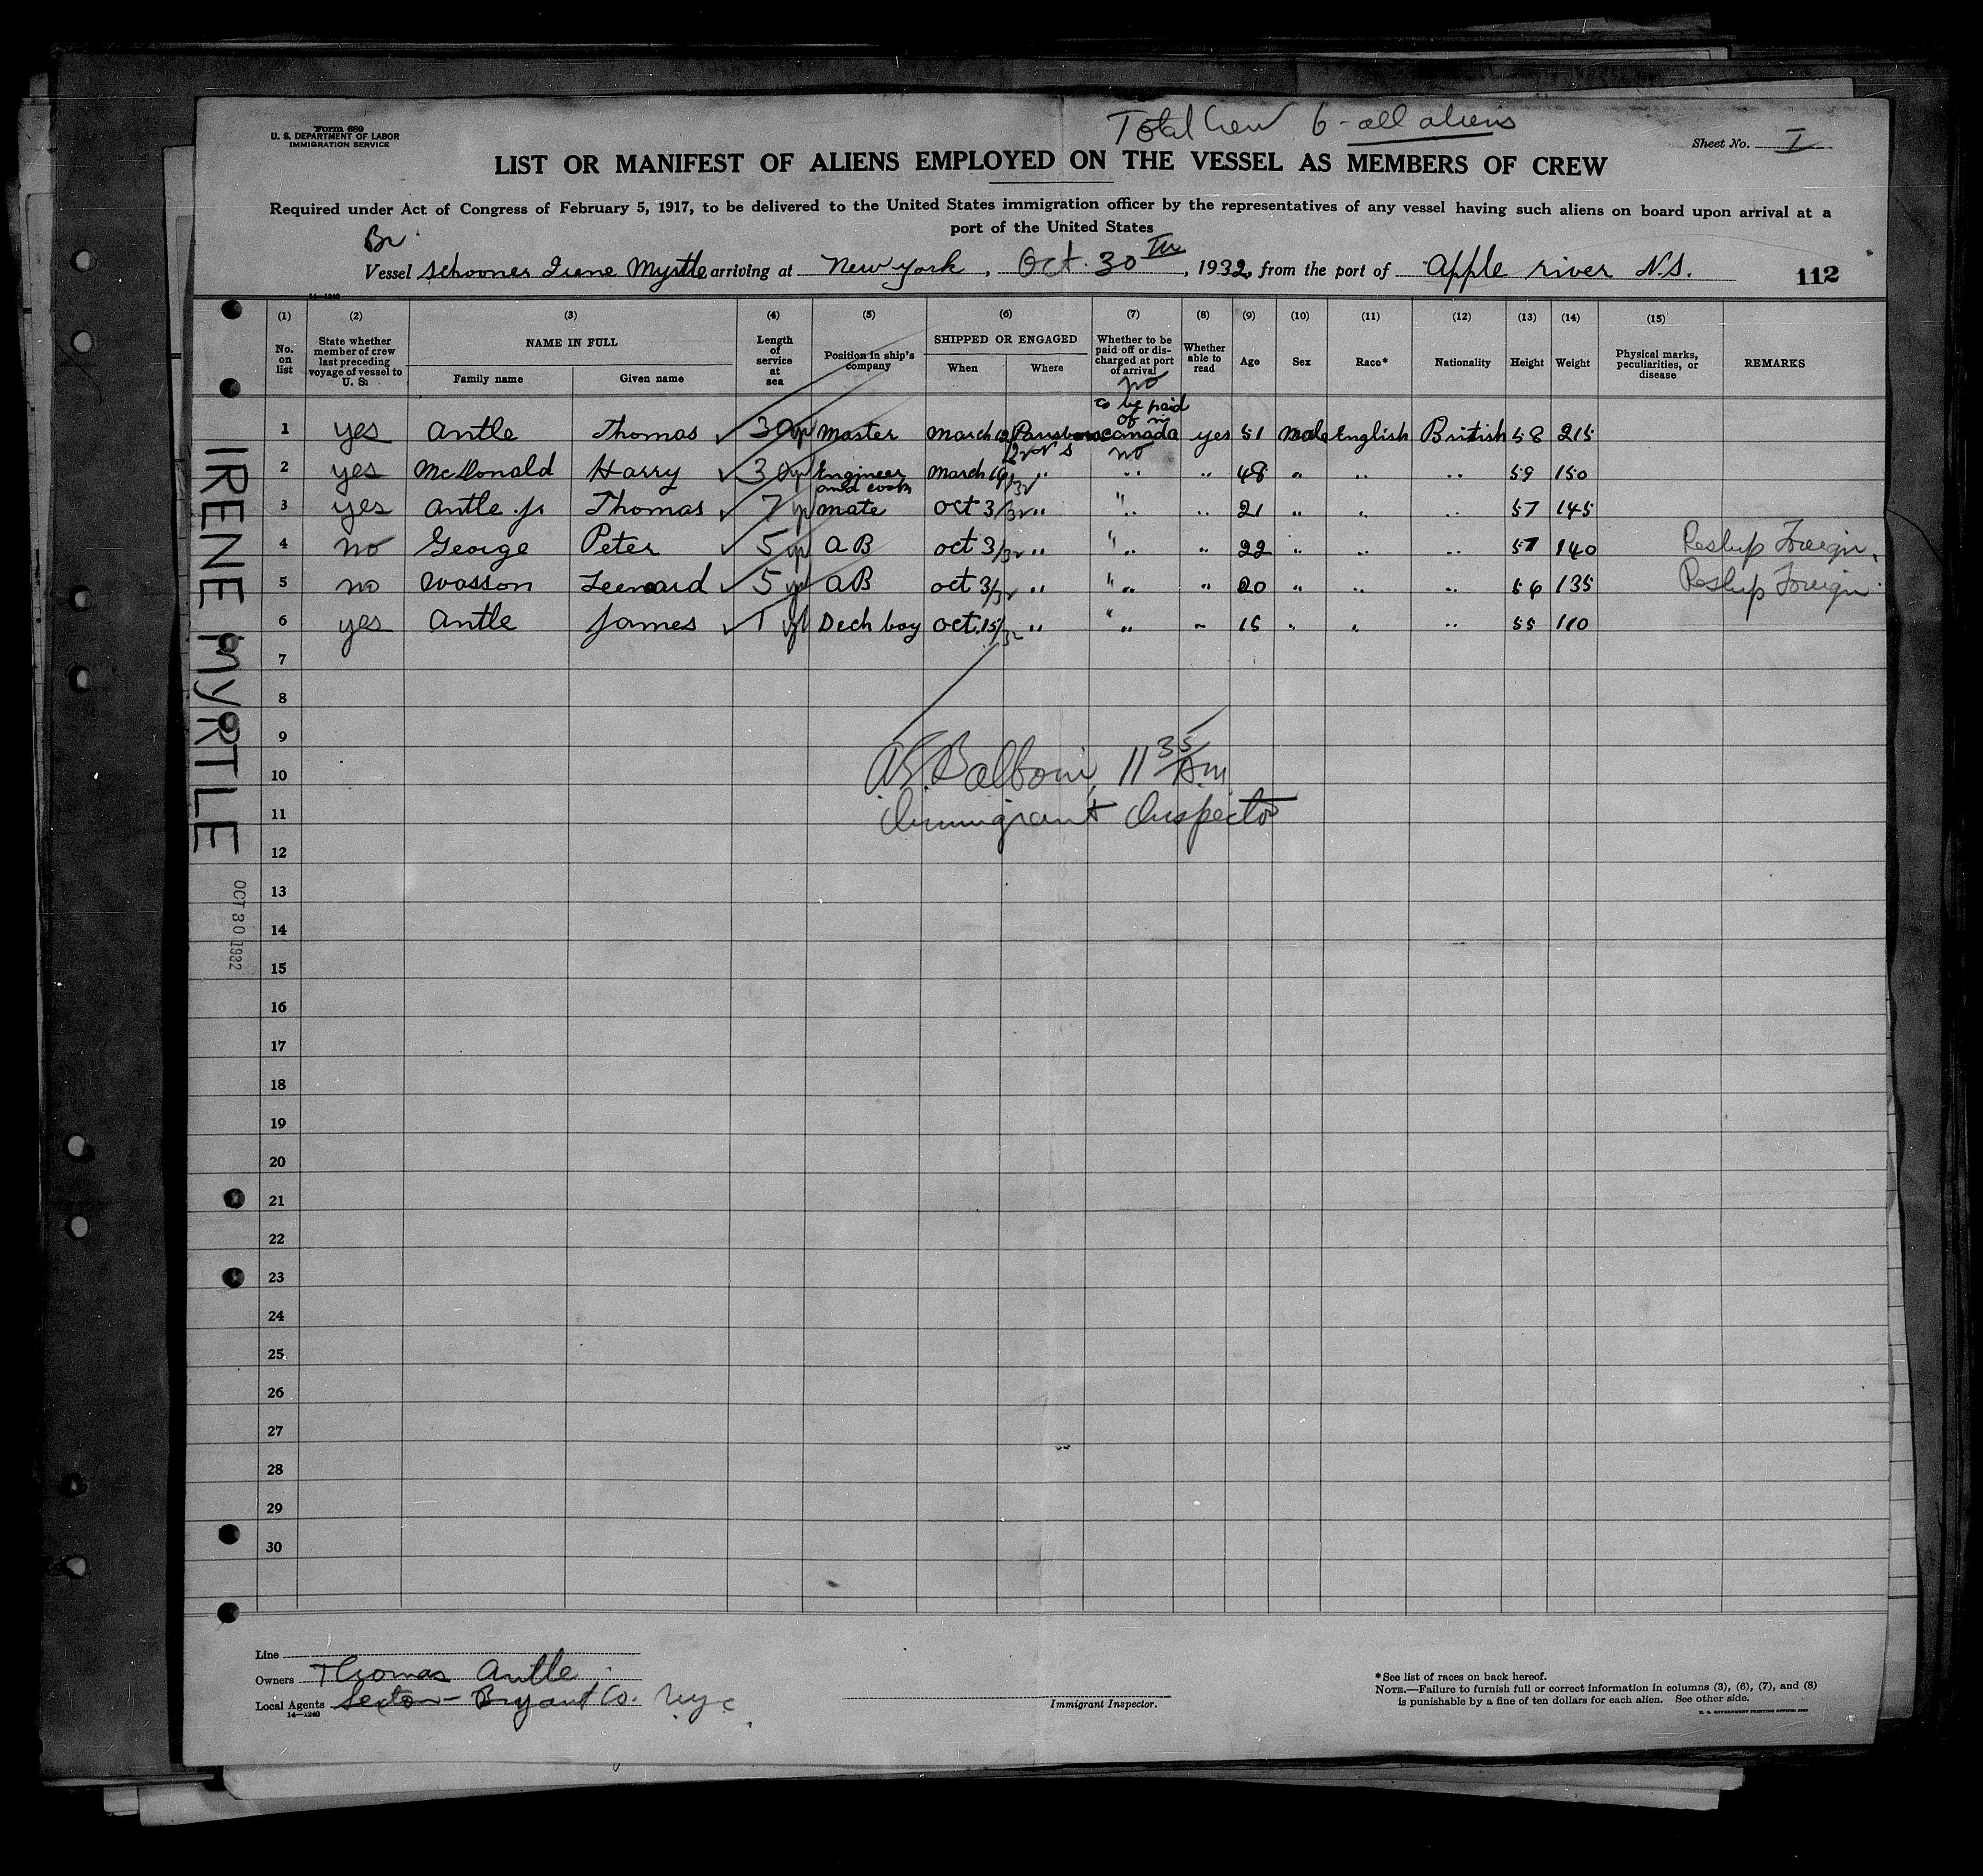 Total Crew 6 - all aliens
Form 680
U. S. DEPARTMENT OF LABOR
IMMIGRATION SERVICE
Sheet No. I
LIST OR MANIFEST OF ALIENS EMPLOYED ON THE VESSEL AS MEMBERS OF CREW
Required under Act of Congress of February 5, 1917, to be delivered to the United States immigration officer by the representatives of any vessel having such aliens on board upon arrival at a
port of the United States
Br.
Vessel Schooner Irene Myrtle arriving at New York, Oct. 30th, 1932, from the port of Apple river N.S.
112
14-1240
(1) (2) (3) (4) (5) (6) (7) (8) (9) (10) (11) (12) (13) (14) (15)
No. on list
State whether member of crew last preceding voyage of vessel to U. S.
NAME IN FULL
Family name
Given name
Length of service at sea
Position in ship's company
SHIPPED OR ENGAGED
When
Where
Whether to be paid off or discharged at port of arrival
Whether able to read
Age
Sex
Race*
Nationality
Height
Weight
Physical marks, peculiarities, or disease
REMARKS
no
to be paid
of in
1 yes Antle Thomas 30 yr Master March Parrsboro Canada yes 51 male English British 58 215
N S no
2 yes McDonald Harry 30 yr Engineer and cook March 19/32 " " " 48 " " " 59 150
3 yes Antle Jr Thomas 7 yr mate oct 3/32 " " " 21 " " " 57 145
4 no George Peter 5 yr A B oct 3/32 " " " 22 " " " 57 140 Reship Foreign.
5 no Wasson Leenoard 5 yr A B oct 3/32 " " " 20 " " " 56 135 Reship Foreign.
6 yes Antle James 1 yr Deck boy oct. 15/32 " " " 15 " " " 55 110
7
8
9
10
11
12
13
14
15
16
17
18
19
20
21
22
23
24
25
26
27
28
29
30
Balboni, 11 35 Am
Immigrant Inspector
IRENE MYRTLE
OCT 30 1932
Line
Owners Thomas Antle
Local Agents Sexton - Bryant Co. N.Y.C.
14-1240
Immigrant Inspector.
*See list of races on back hereof.
NOTE.—Failure to furnish full or correct information in columns (3), (6), (7), and (8)
is punishable by a fine of ten dollars for each alien. See other side.